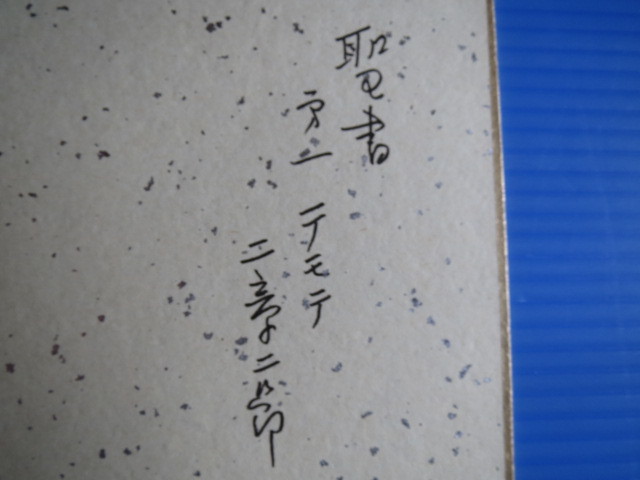 聖書
第二 テモテ
二章二節